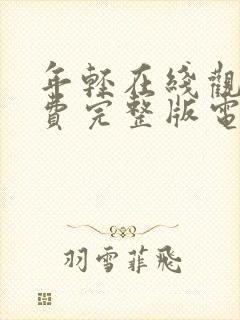 年轻在线觀
費完整版電
羽雪菲飛